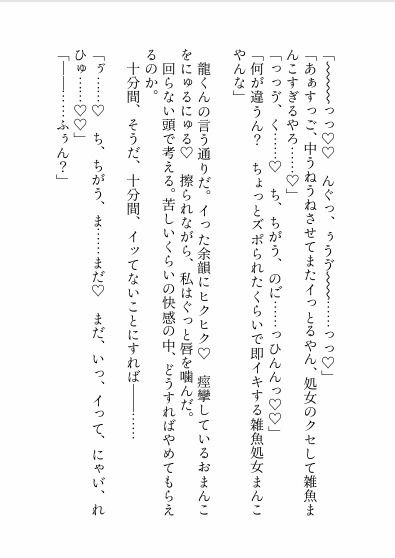 「～～～っっ♡♡　んぐっ、ぅうゔ～～～……っっ♡」
「あぁすっご、中うねうねさせてまたイっとるやん、処女のクセして雑魚ま
んこすぎるやろ……♡」
「っっゔ、く……♡　ち、ちがう、のに゛……っひんんっ♡♡」
「何が違うん？　ちょっとズポられたくらいで即イキする雑魚処女まんこ
やんな」
　龍くんの言う通りだ。イった余韻にヒクヒク♡　痙攣しているおまんこ
をにゅるにゅる♡　擦られながら、私はぐっと唇を噛んだ。
　回らない頭で考える。苦しいくらいの快感の中、どうすればやめてもらえ
るのか。
　十分間、そうだ、十分間、イッてないことにすれば――……
「ゔ……♡　ち、ちがう、ま……まだ♡　まだ、いっ、イって、にゃい゛、れ
ひゅ……♡♡」
「――……ふぅん？」